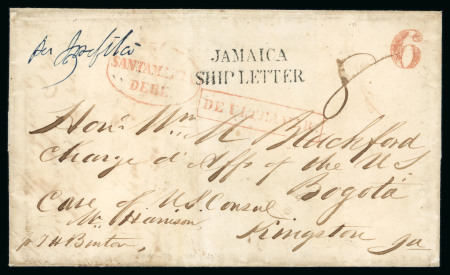 Per
JAMAICA
SHIP LETTER
6
SANTAMARTA
DEBE
8
DE ULTRAMAR
Hon. Wm. M. Blackford
Charge d'Affs of the U.S.
Bogotá
Care of U.S. Consul
Mr Harrison
Kingston Ja
pr T H Benton